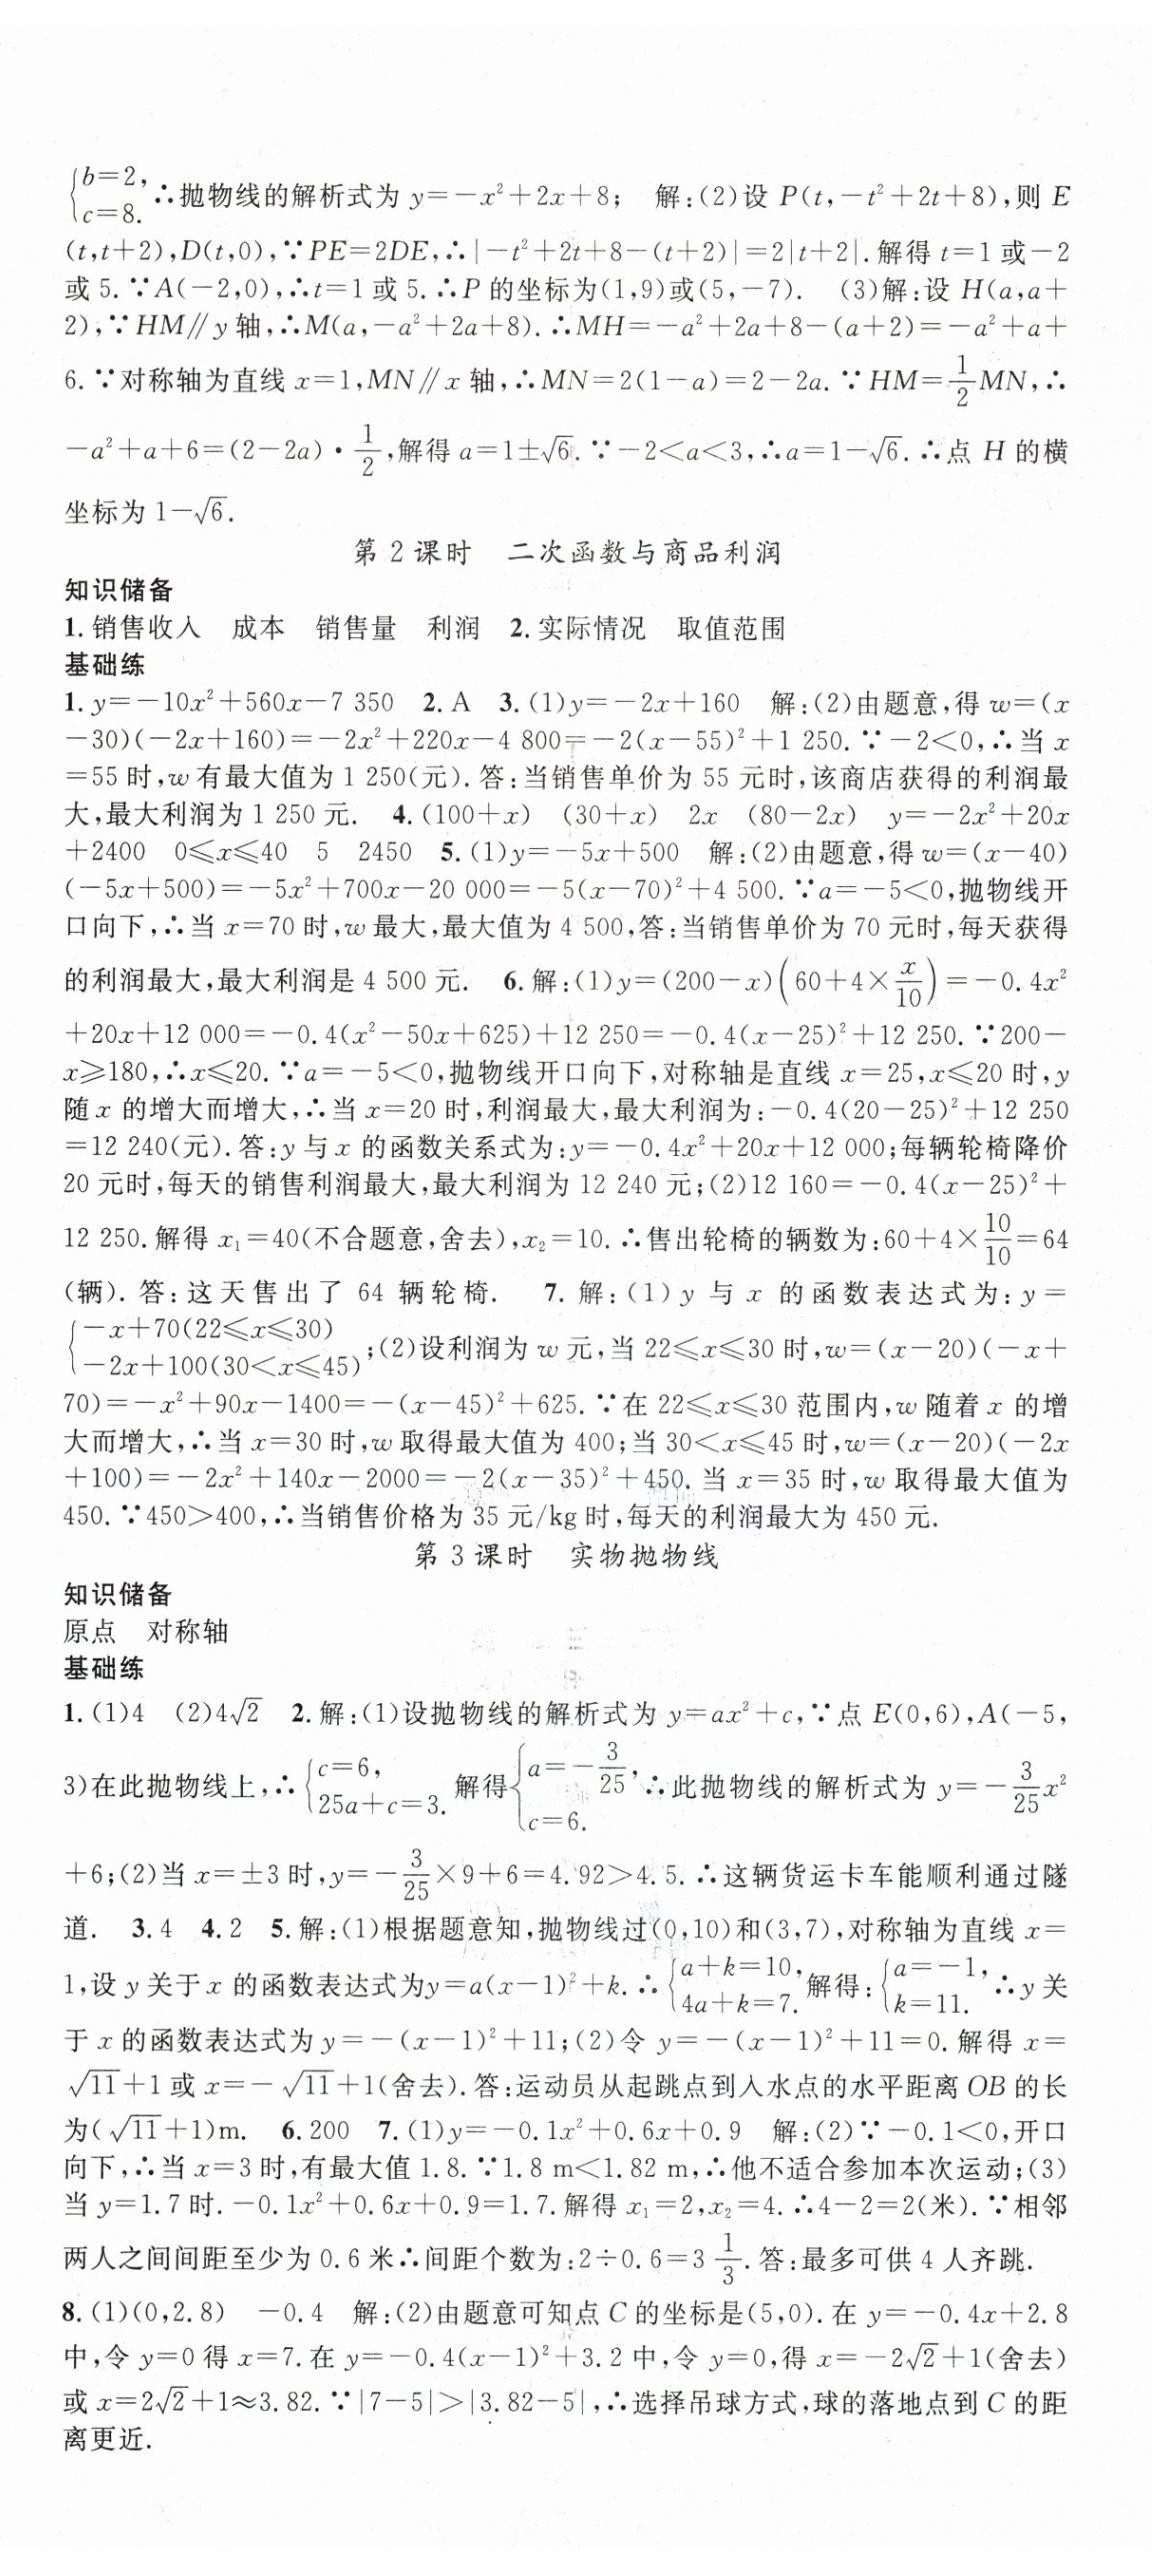 {b=2, c=8. ∴抛物线的解析式为 y=-x²+2x+8; 解:(2)设 P(t,-t²+2t+8),则 E
(t,t+2),D(t,0),∵PE=2DE,∴|-t²+2t+8-(t+2)|=2|t+2|.解得 t=1 或-2
或 5.∵A(-2,0),∴t=1 或 5.∴P 的坐标为(1,9)或(5,-7). (3)解:设 H(a,a+
2),∵HM∥y 轴,∴M(a,-a²+2a+8).∴MH=-a²+2a+8-(a+2)=-a²+a+
6.∵对称轴为直线 x=1,MN∥x 轴,∴MN=2(1-a)=2-2a.∵HM=1/2MN,∴
-a²+a+6=(2-2a)·1/2,解得 a=1±√6.∵-2<a<3,∴a=1-√6.∴点 H 的横
坐标为 1-√6.
第 2 课时 二次函数与商品利润
知识储备
1.销售收入 成本 销售量 利润 2.实际情况 取值范围
基础练
1.y=-10x²+560x-7 350 2.A 3.(1)y=-2x+160 解:(2)由题意,得 w=(x
-30)(-2x+160)=-2x²+220x-4 800=-2(x-55)²+1 250.∵-2<0,∴当 x
=55 时,w 有最大值为 1 250(元).答:当销售单价为 55 元时,该商店获得的利润最
大,最大利润为 1 250 元. 4.(100+x) (30+x) 2x (80-2x) y=-2x²+20x
+2400 0≤x≤40 5 2450 5.(1)y=-5x+500 解:(2)由题意,得 w=(x-40)
(-5x+500)=-5x²+700x-20 000=-5(x-70)²+4 500.∵a=-5<0,抛物线开
口向下,∴当 x=70 时,w 最大,最大值为 4 500,答:当销售单价为 70 元时,每天获得
的利润最大,最大利润是 4 500 元. 6.解:(1)y=(200-x)(60+4×x/10)=-0.4x²
+20x+12 000=-0.4(x²-50x+625)+12 250=-0.4(x-25)²+12 250.∵200-
x≥180,∴x≤20.∵a=-5<0,抛物线开口向下,对称轴是直线 x=25,x≤20 时,y
随 x 的增大而增大,∴当 x=20 时,利润最大,最大利润为:-0.4(20-25)²+12 250
=12 240(元).答:y 与 x 的函数关系式为:y=-0.4x²+20x+12 000;每辆轮椅降价
20 元时,每天的销售利润最大,最大利润为 12 240 元;(2)12 160=-0.4(x-25)²+
12 250.解得 x₁=40(不合题意,舍去),x₂=10.∴售出轮椅的辆数为:60+4×10/10=64
(辆).答:这天售出了 64 辆轮椅. 7.解:(1)y 与 x 的函数表达式为:y=
{-x+70(22≤x≤30) -2x+100(30<x≤45);(2)设利润为 w 元,当 22≤x≤30 时,w=(x-20)(-x+
70)=-x²+90x-1400=-(x-45)²+625.∵在 22≤x≤30 范围内,w 随着 x 的增
大而增大,∴当 x=30 时,w 取得最大值为 400;当 30<x≤45 时,w=(x-20)(-2x
+100)=-2x²+140x-2000=-2(x-35)²+450.当 x=35 时,w 取得最大值为
450.∵450>400,∴当销售价格为 35 元/kg 时,每天的利润最大为 450 元.
第 3 课时 实物抛物线
知识储备
原点 对称轴
基础练
1.(1)4 (2)4√2 2.解:(1)设抛物线的解析式为 y=ax²+c,∵点 E(0,6),A(-5,
3)在此抛物线上,∴{c=6, 25a+c=3. 解得{a=-3/25, c=6. ∴此抛物线的解析式为 y=-3/25x²
+6;(2)当 x=±3 时,y=-3/25×9+6=4.92>4.5.∴这辆货运卡车能顺利通过隧
道. 3.4 4.2 5.解:(1)根据题意知,抛物线过(0,10)和(3,7),对称轴为直线 x=
1,设 y 关于 x 的函数表达式为y=a(x-1)²+k.∴{a+k=10, 4a+k=7. 解得:{a=-1, k=11. ∴y 关
于 x 的函数表达式为 y=-(x-1)²+11;(2)令 y=-(x-1)²+11=0.解得 x=
√11+1 或 x=-√11+1(舍去).答:运动员从起跳点到入水点的水平距离 OB 的长
为(√11+1)m. 6.200 7.(1)y=-0.1x²+0.6x+0.9 解:(2)∵-0.1<0,开口
向下,∴当 x=3 时,有最大值 1.8.∵1.8 m<1.82 m,∴他不适合参加本次运动;(3)
当 y=1.7 时.-0.1x²+0.6x+0.9=1.7.解得 x₁=2,x₂=4.∴4-2=2(米).∵相邻
两人之间间距至少为 0.6 米∴间距个数为:2÷0.6=3 1/3.答:最多可供 4 人齐跳.
8.(1)(0,2.8) -0.4 解:(2)由题意可知点 C 的坐标是(5,0).在 y=-0.4x+2.8
中,令 y=0 得 x=7.在 y=-0.4(x-1)²+3.2 中,令 y=0,得 x=-2√2+1(舍去)
或 x=2√2+1≈3.82.∵|7-5|>|3.82-5|,∴选择吊球方式,球的落地点到 C 的距
离更近.